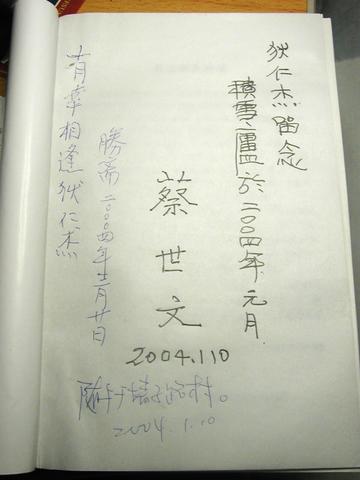 狄仁杰留念
積雪之廬於二〇〇四年元月
蔡世文
2004.1.10
勝斋二〇〇四年 月廿日
有幸相逢狄仁杰
村。
2004.1.10